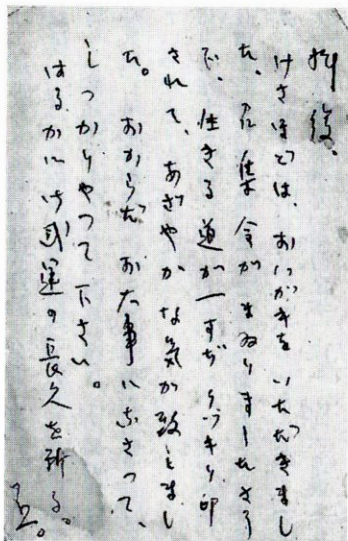 拝復、
けさほどは、おハガキをいただきまし
た、召集令がまゐりましたさう
で、生きる道が一すぢクッキリ印
されて、あざやかな気が致しまし
た。おからだお大事になさつて、
しつかりやつて下さい。
はるかに御武運の長久を祈る。